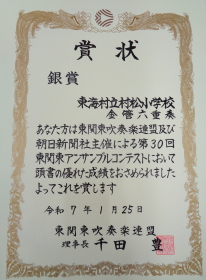 賞状
銀賞
東海村立村松小学校
金管六重奏
あなた方は東関東吹奏楽連盟及び
朝日新聞社主催による第30回
東関東アンサンブルコンテストにおいて
頭書の優れた成績をおさめられました
よってこれを賞します
令和7年1月25日
東関東吹奏楽連盟
理事長 千田 豊